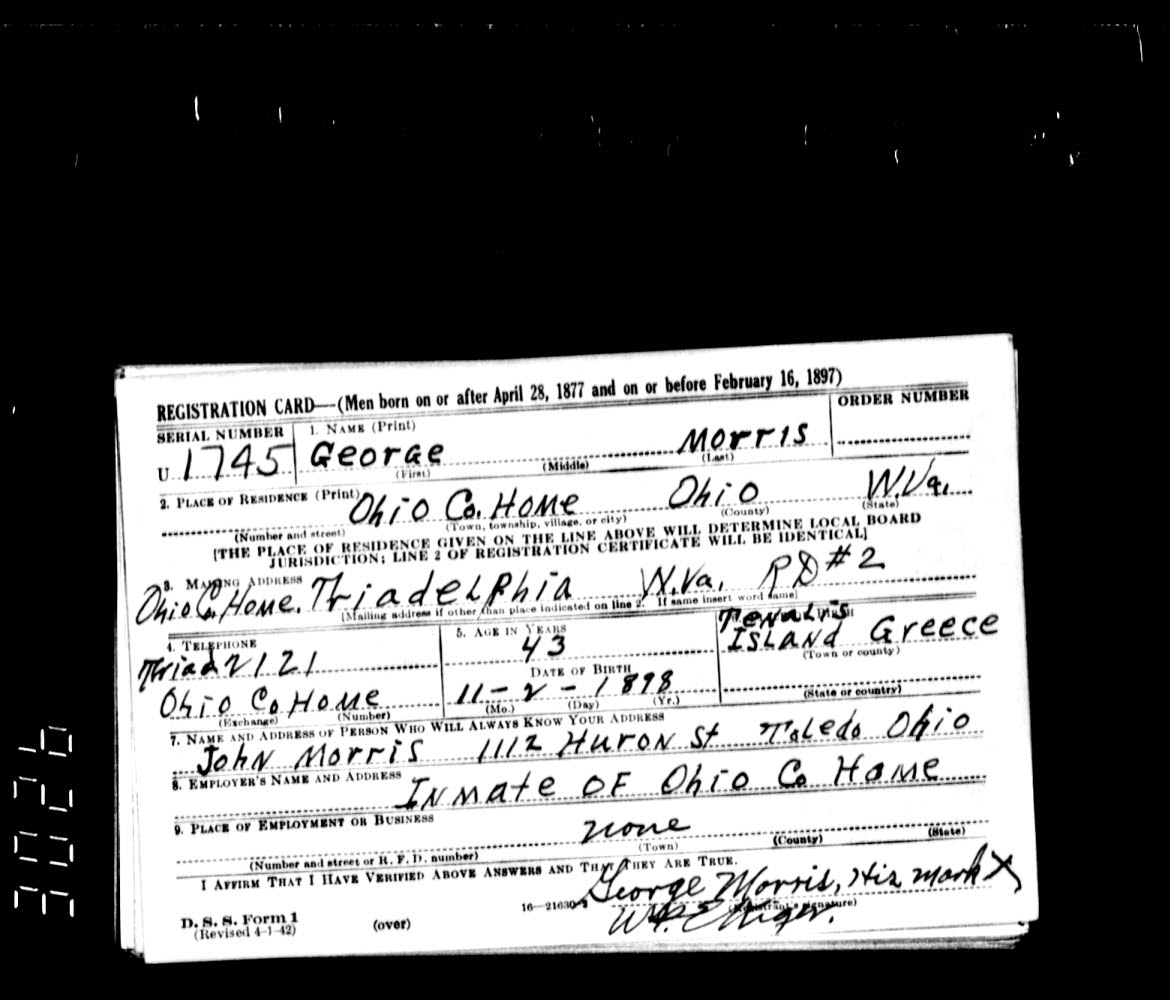 REGISTRATION CARD—(Men born on or after April 28, 1877 and on or before February 16, 1897)
SERIAL NUMBER
1. NAME (Print)
ORDER NUMBER
U 1745
George Morris
(First) (Middle) (Last)
2. PLACE OF RESIDENCE (Print)
Ohio Co. Home Ohio W.Va.
(Number and street) (Town, township, village, or city) (County) (State)
[THE PLACE OF RESIDENCE GIVEN ON THE LINE ABOVE WILL DETERMINE LOCAL BOARD
JURISDICTION; LINE 2 OF REGISTRATION CERTIFICATE WILL BE IDENTICAL]
3. MAILING ADDRESS
Ohio Co. Home. Triadelphia W.Va. RD #2
[Mailing address if other than place indicated on line 2. If same insert word same]
4. TELEPHONE
Triad 2121
Ohio Co Home
(Exchange) (Number)
5. AGE IN YEARS
43
DATE OF BIRTH
11-2-1898
(Mo.) (Day) (Yr.)
Island Greece
(Town or county)
(State or country)
7. NAME AND ADDRESS OF PERSON WHO WILL ALWAYS KNOW YOUR ADDRESS
John Morris 1112 Huron St Toledo Ohio
8. EMPLOYER'S NAME AND ADDRESS
Inmate of Ohio Co Home
9. PLACE OF EMPLOYMENT OR BUSINESS
none
(Number and street or R. F. D. number) (Town) (County) (State)
I AFFIRM THAT I HAVE VERIFIED ABOVE ANSWERS AND THAT THEY ARE TRUE.
George Morris, His mark X
D. S. S. Form 1
(Revised 4-1-42)
(over)
16—21630-2
(Registrant's signature)